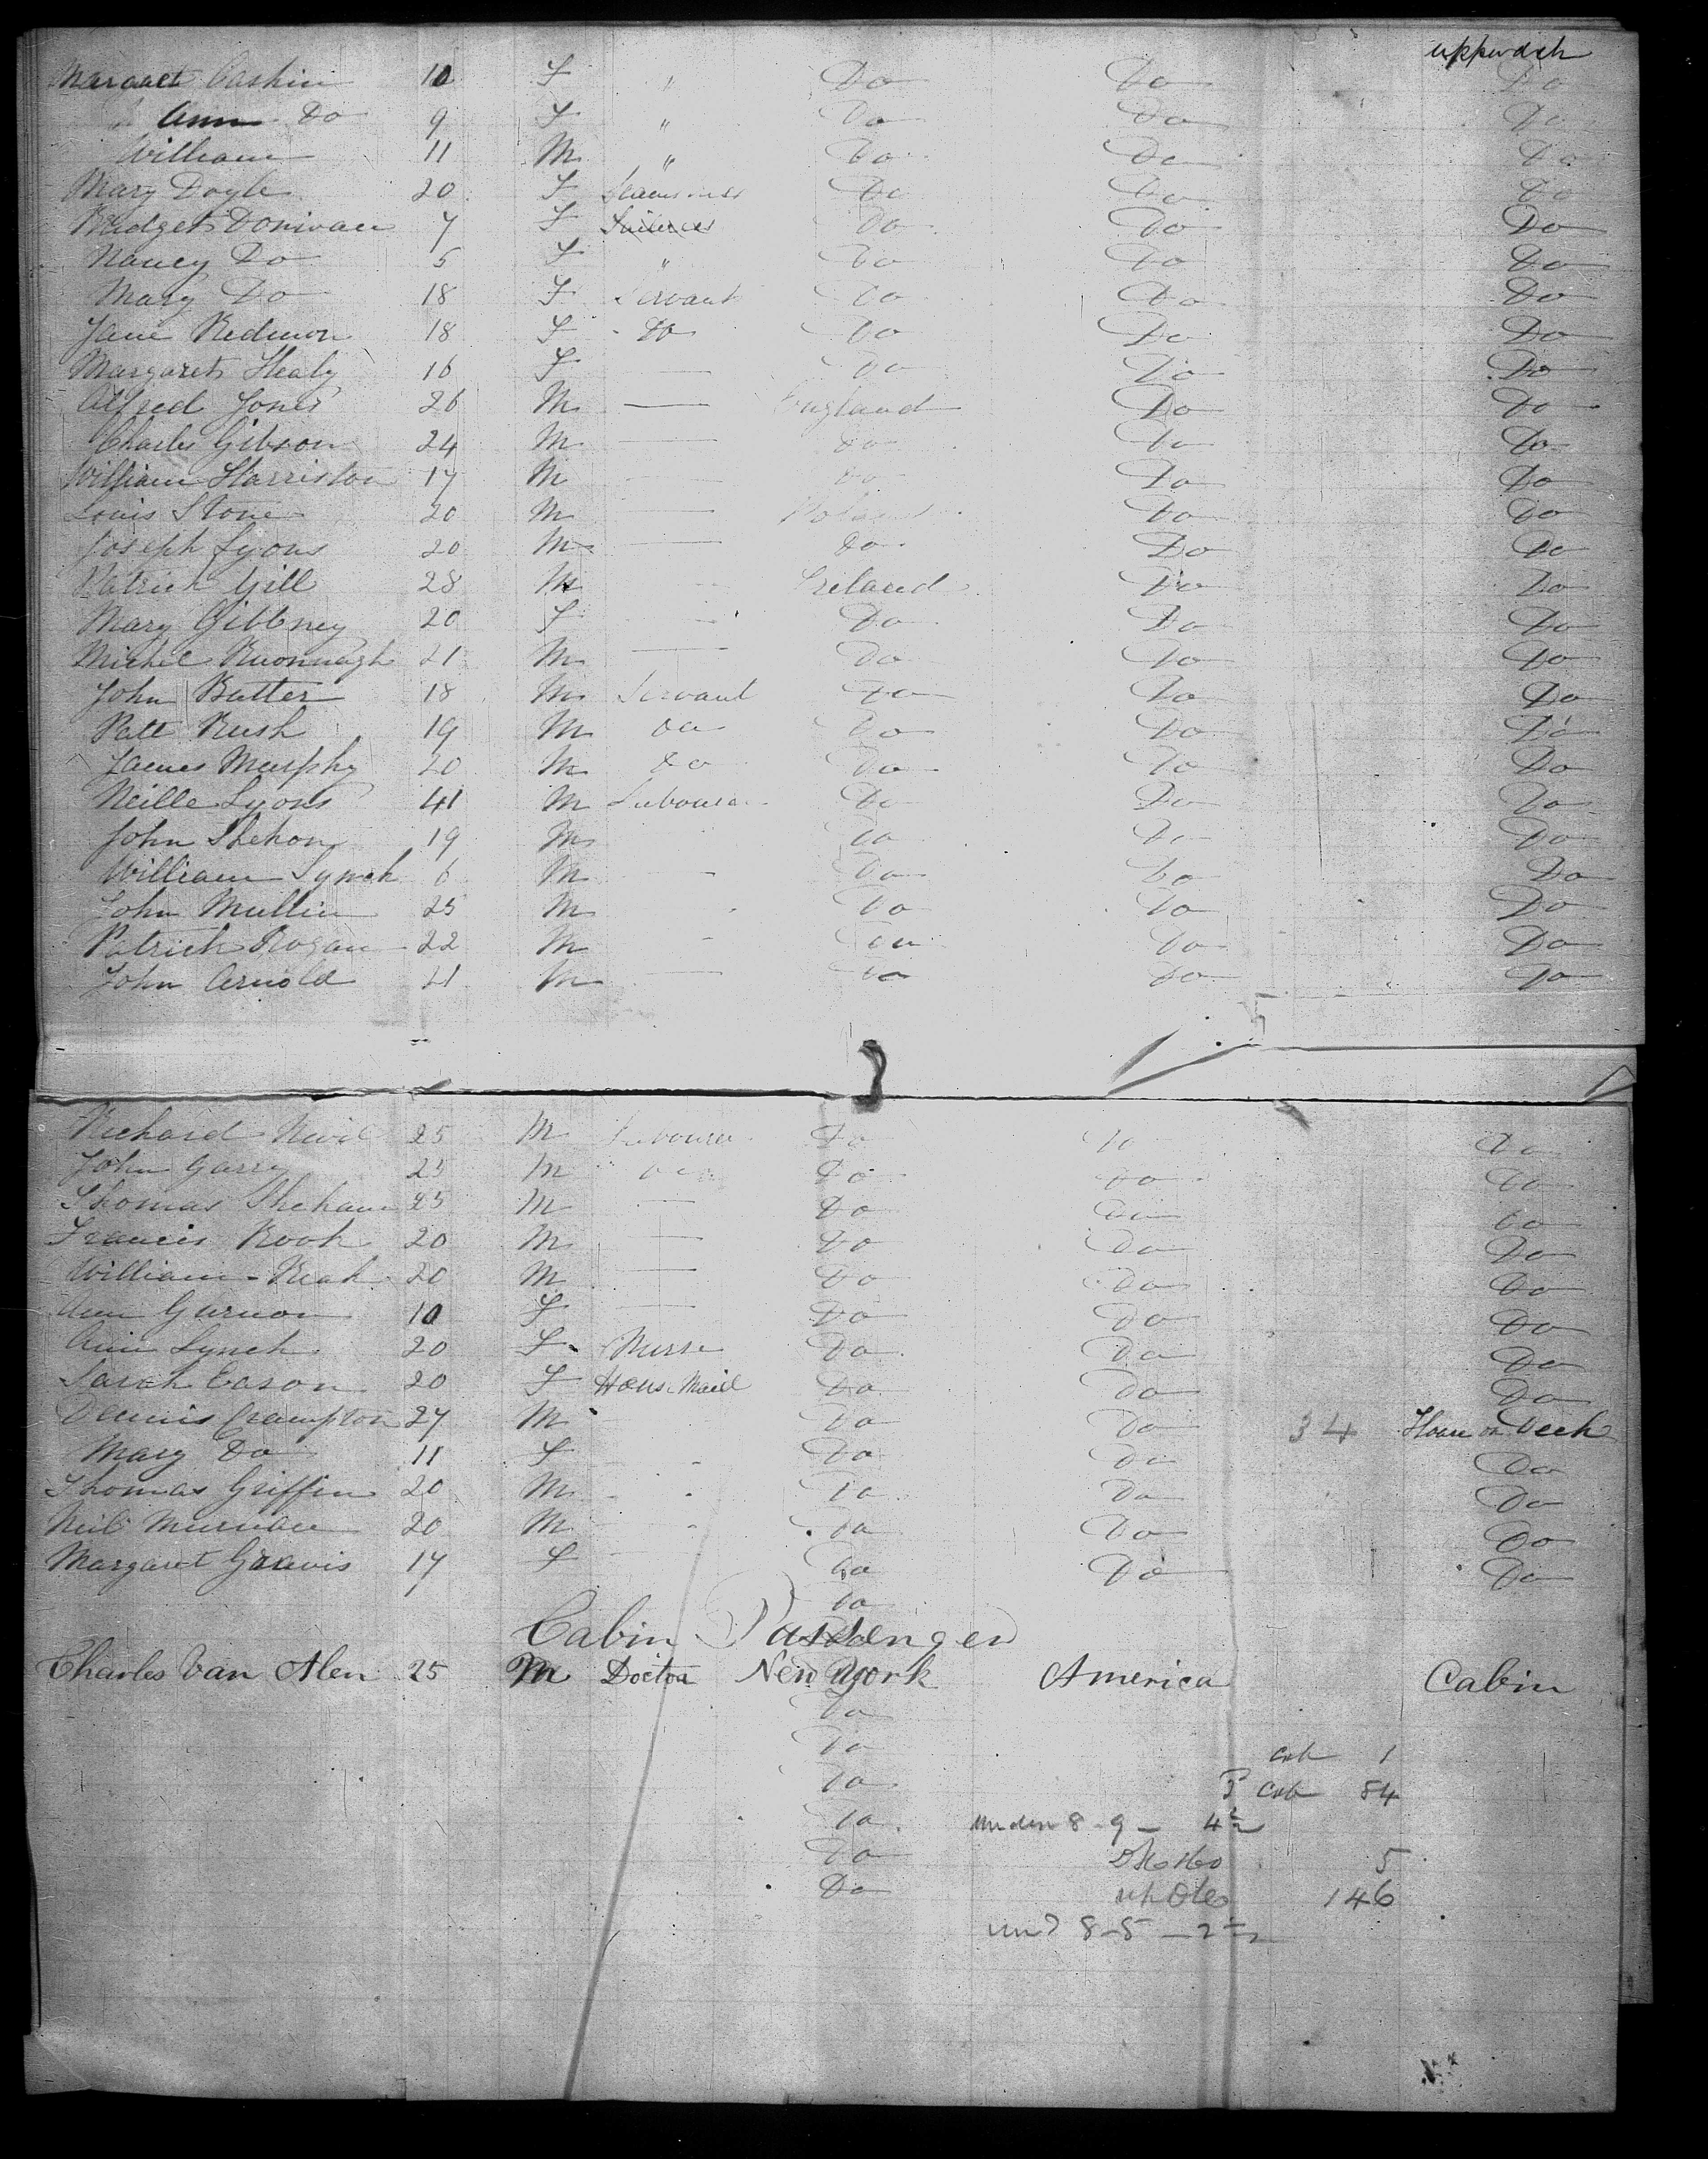 upperdeck
Margaret Cashin 10 F " Do Do Do
Ann Do 9 F " Do Do Do
William 11 M " Do Do Do
Mary Doyle 20 F Do Do Do
Bridget Donivan 7 F Do Do Do
Nancy Do 5 F " Do Do Do
Mary Do 18 F Servant Do Do Do
Jane Redmon 18 F Do Do Do Do
Margaret Healy 16 F — Do Do Do
Alfred Jones 26 M — England Do Do
Charles Gibson 24 M — Do Do Do
William Harriston 17 M — Do Do Do
Louis Stone 20 M — Poland Do Do
Joseph Lyons 20 M — Do Do Do
Patrick Gill 28 M Ireland Do Do
Mary Gibbney 20 F Do Do Do
Michel 21 M — Do Do Do
John Butter 18 M Servant Do Do Do
Patt Rush 19 M Do Do Do Do
James Murphy 20 M Do Do Do Do
Neille Lyons 41 M Labourer Do Do Do
John Shehon 19 M Do Do Do
William Lynch 6 M - Do Do Do
John Mullin 25 M Do Do Do
Patrick Rogan 22 M - Do Do Do
John Arnold 21 M — Do Do Do
Richard Nevil 25 M Labourer Do Do Do
John Garry 25 M Do Do Do Do
Thomas Shehan 25 M — Do Do Do
Francis Rook 20 M — Do Do Do
William 20 M — Do Do Do
Ann Gurnon 10 F — Do Do Do
Ann Lynch 20 F Nurse Do Do Do
Sarah Eason 20 F House Maid Do Do Do
Dennis Crampton 27 M Do Do 34 House on Deck
Mary Do 11 F Do Do Do
Thomas Griffin 20 M Do Do Do
Neil Murnan 20 M Do Do Do
Margaret Gravis 17 F Do Do Do
Do
Cabin Passenger
Charles Van Alen 25 M Doctor New York America Cabin
Do
Do cab 1
Do cab 84
Do under 8 - 9 - 4½
Do 5
Do 146
und 8 - 5 - 2½